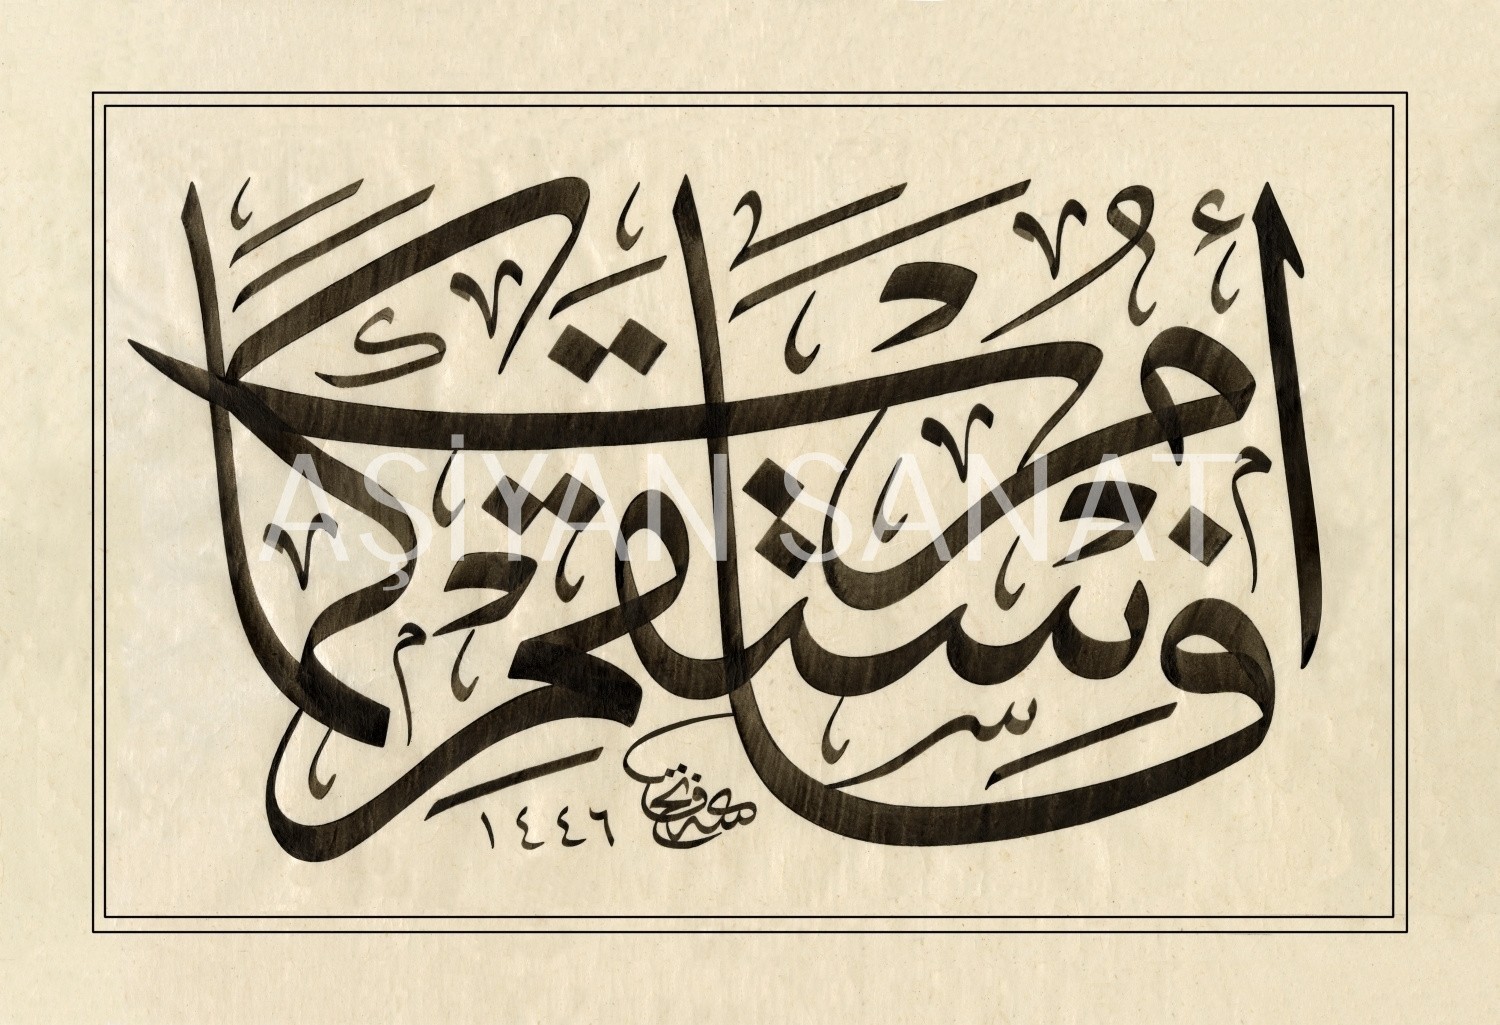 فَاسْتَقِمْ كَمَا أُمِرْتَ
AŞİYAN SANAT
١٤٤٦